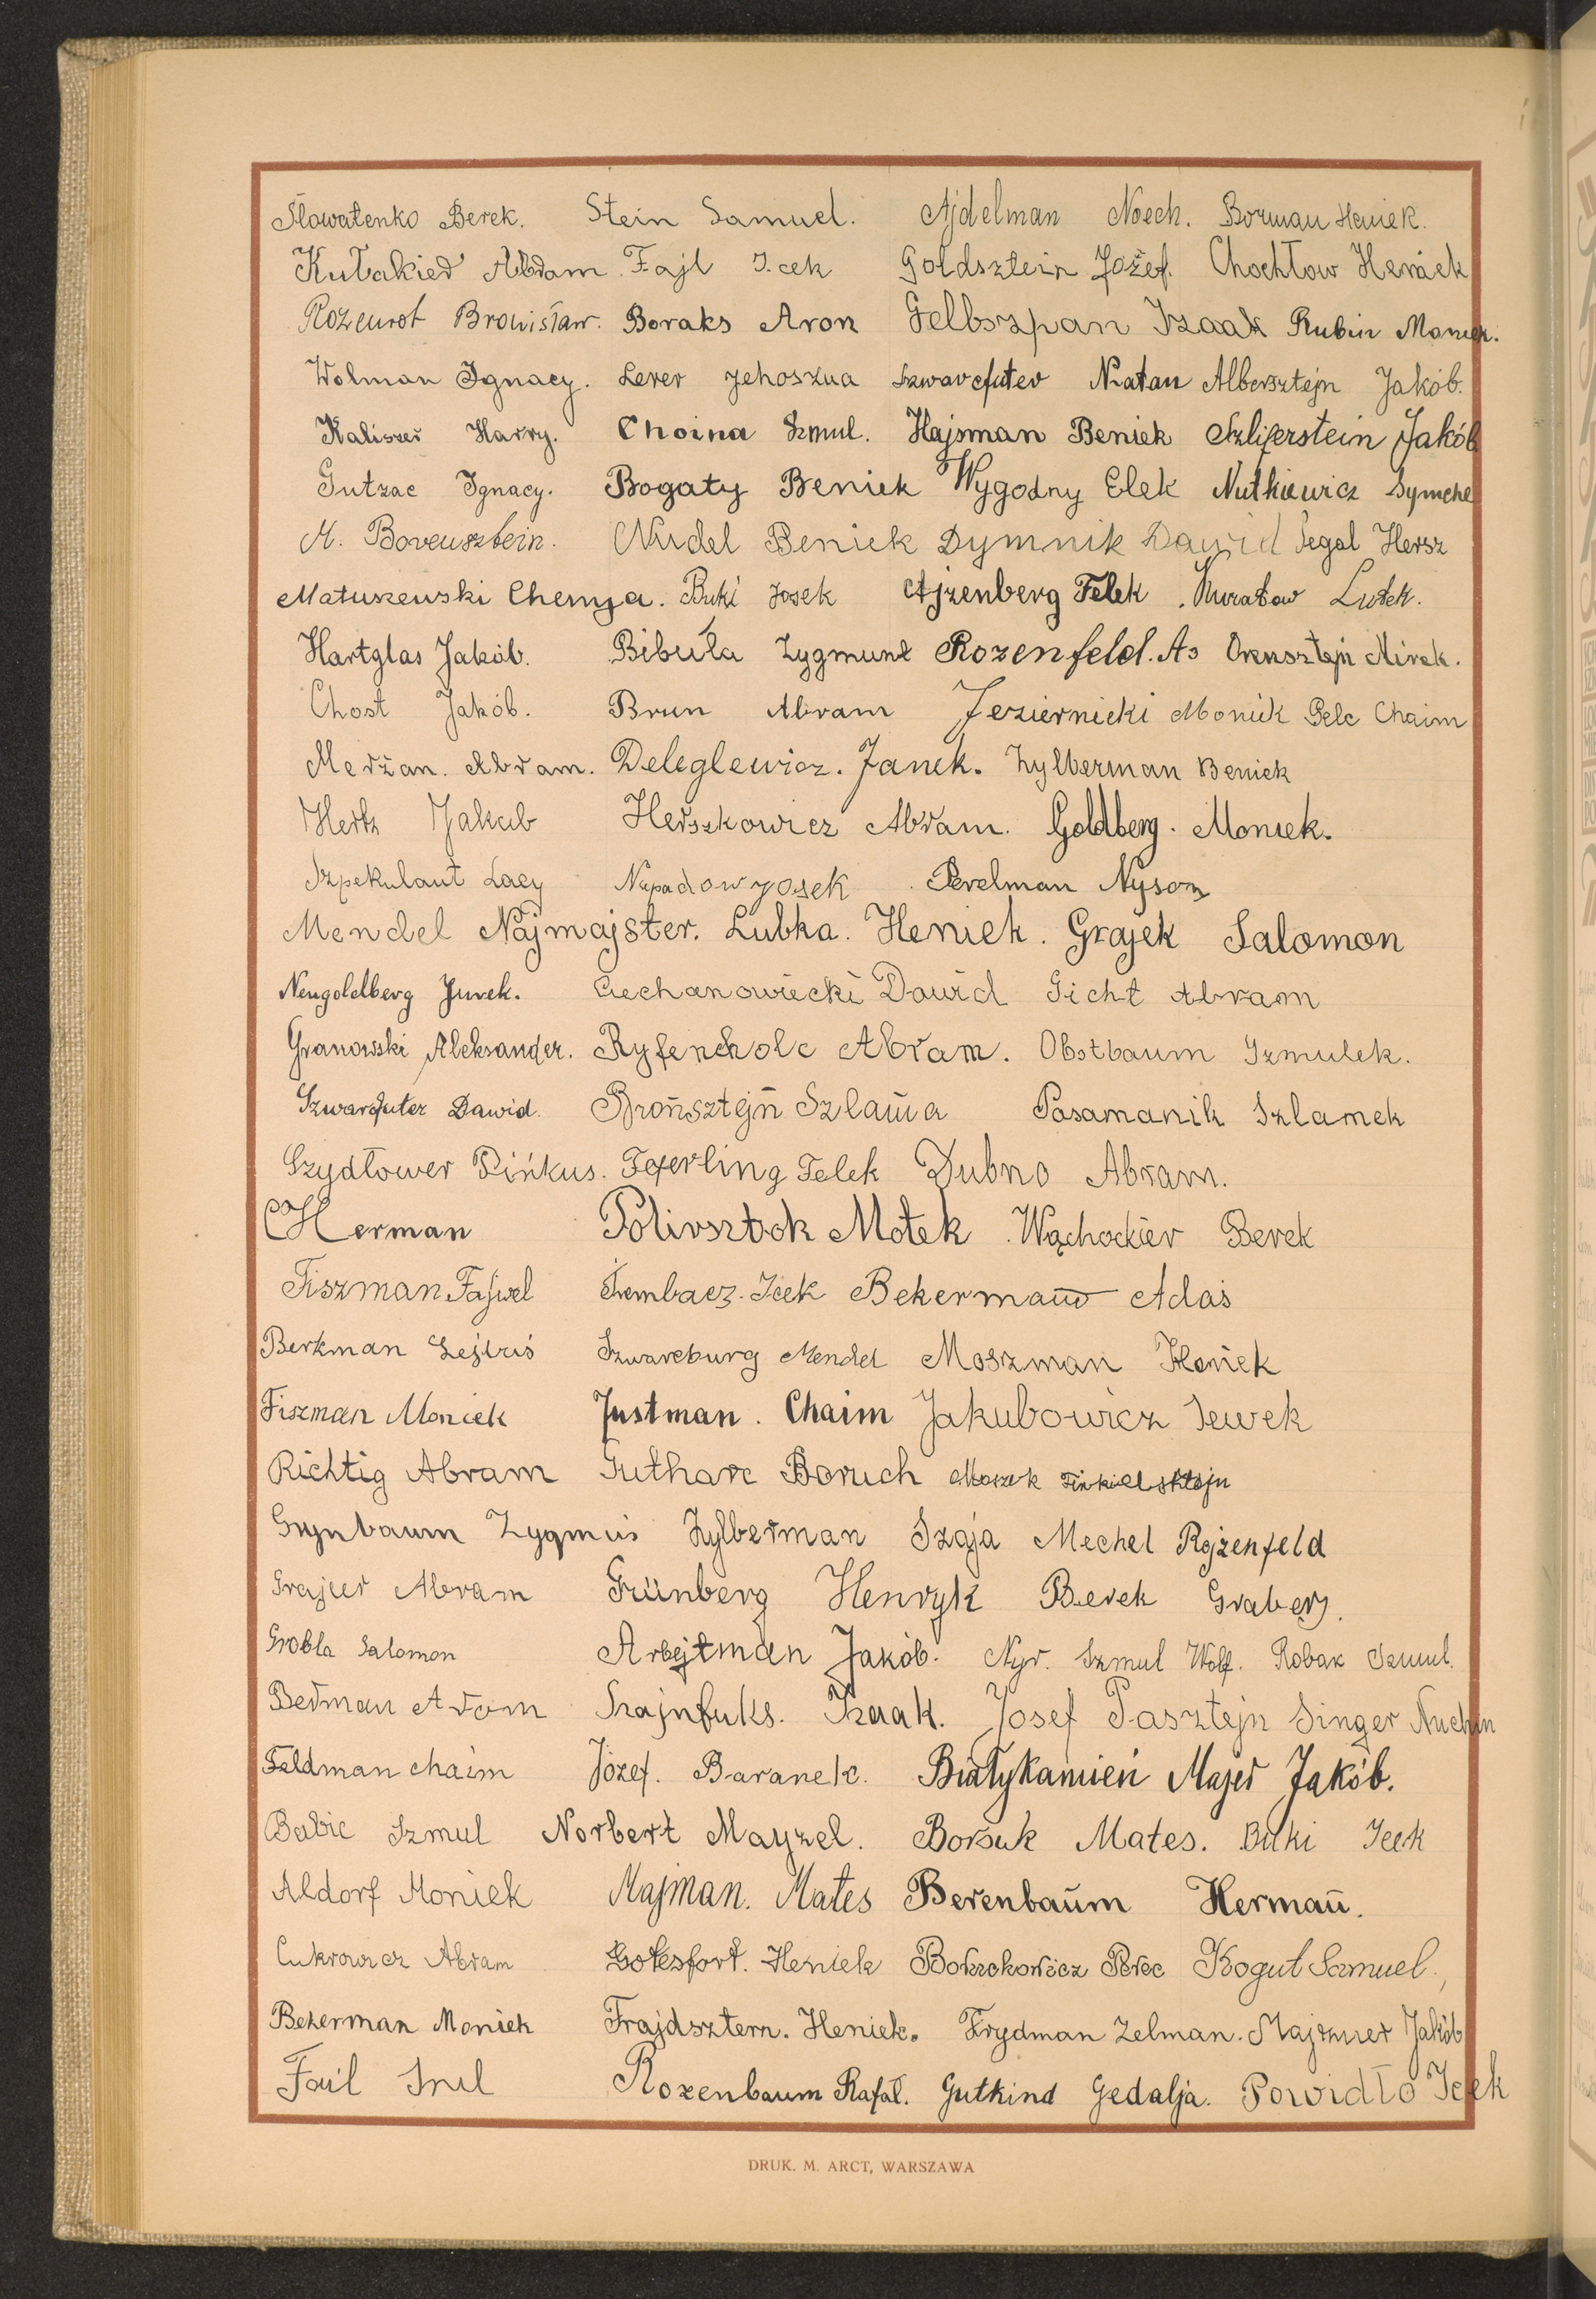 Sławatenko Berek. Stein Samuel. Ajdelman Noech. Borman Heniek.
Kułakier Abram. Fajl Icek Goldsztein Józef. Chochłow Heniek
Rozenrot Bronisław. Boraks Aron Felbszpan Izaak Rubin Moniek.
Wolman Ignacy. Lerer Jehoszua Szwarcfuter Natan Albersztejn Jakób.
Kaliszer Harry. Choina Szmul. Hajsman Beniek Szliferstein Jakób
Gutzac Ignacy. Bogaty Beniek Wygodny Elek Nutkiewicz Symche
M. Borensztein. Nudel Beniek Dymnik Dawid Segal Hersz
Matuszewski Chemja. Buki Josek Ajzenberg Felek. Kuratow Lutek.
Hartglas Jakób. Bibuła Zygmunt Rozenfeld. As Orensztejn Mirek.
Chost Jakób. Brun Abram Jeziernicki Moniek Pelc Chaim
Merżan. Abram. Deleglewicz. Janek. Zylberman Beniek
Hertz Jakub Herszkowicz Abram. Goldberg. Moniek.
Szpekulant Lacy Napadow Josek Perelman Nyson
Mendel Najmajster. Lubka. Heniek. Grajek Salomon
Neugoldberg Jurek. Ciechanowiecki Dawid Gicht Abram
Granowski Aleksander. Ryfencholc Abram. Obstbaum Szmulek.
Szwarcfuter Dawid. Bronsztejn Szlama Pasamanik Szlamek
Szydłower Pinkus. Feferling Felek Dubno Abram.
Herman Polirsztok Motek. Wąchockier Berek
Fiszman Fajwel Trembacz. Icek Bekerman Adaś
Berkman Lejbuś Szwarcburg Mendel Moszman Heniek
Fiszman Moniek Justman. Chaim Jakubowicz Sewek
Richtig Abram Gutharc Boruch Moszek Finkielsztejn
Grynbaum Zygmuś Zylberman Szaja Mechel Rojzenfeld
Grajcer Abram Grünberg Henryk Berek Graberz.
Grobla Salomon Arbejtman Jakób. Nyr. Szmul Wolf. Robak Szmul.
Berman Arom Szajnfuks. Izaak. Josef Pasztejn Singer Nuchin
Feldman Chaim Józef. Baranek. Białykamień Majer Jakób.
Babic Szmul Norbert Mayzel. Borsuk Mates. Buki Icek
Aldorf Moniek Najman. Mates Berenbaum Herman.
Cukrowicz Abram Gotesfort. Heniek Perec Kogut Samuel.
Bekerman Moniek Frajdsztern. Heniek. Frydman Zelman. Majzner Jakób
Fail Srul Rozenbaum Rafał. Gutkind Gedalja. Powidło Icek
DRUK. M. ARCT, WARSZAWA